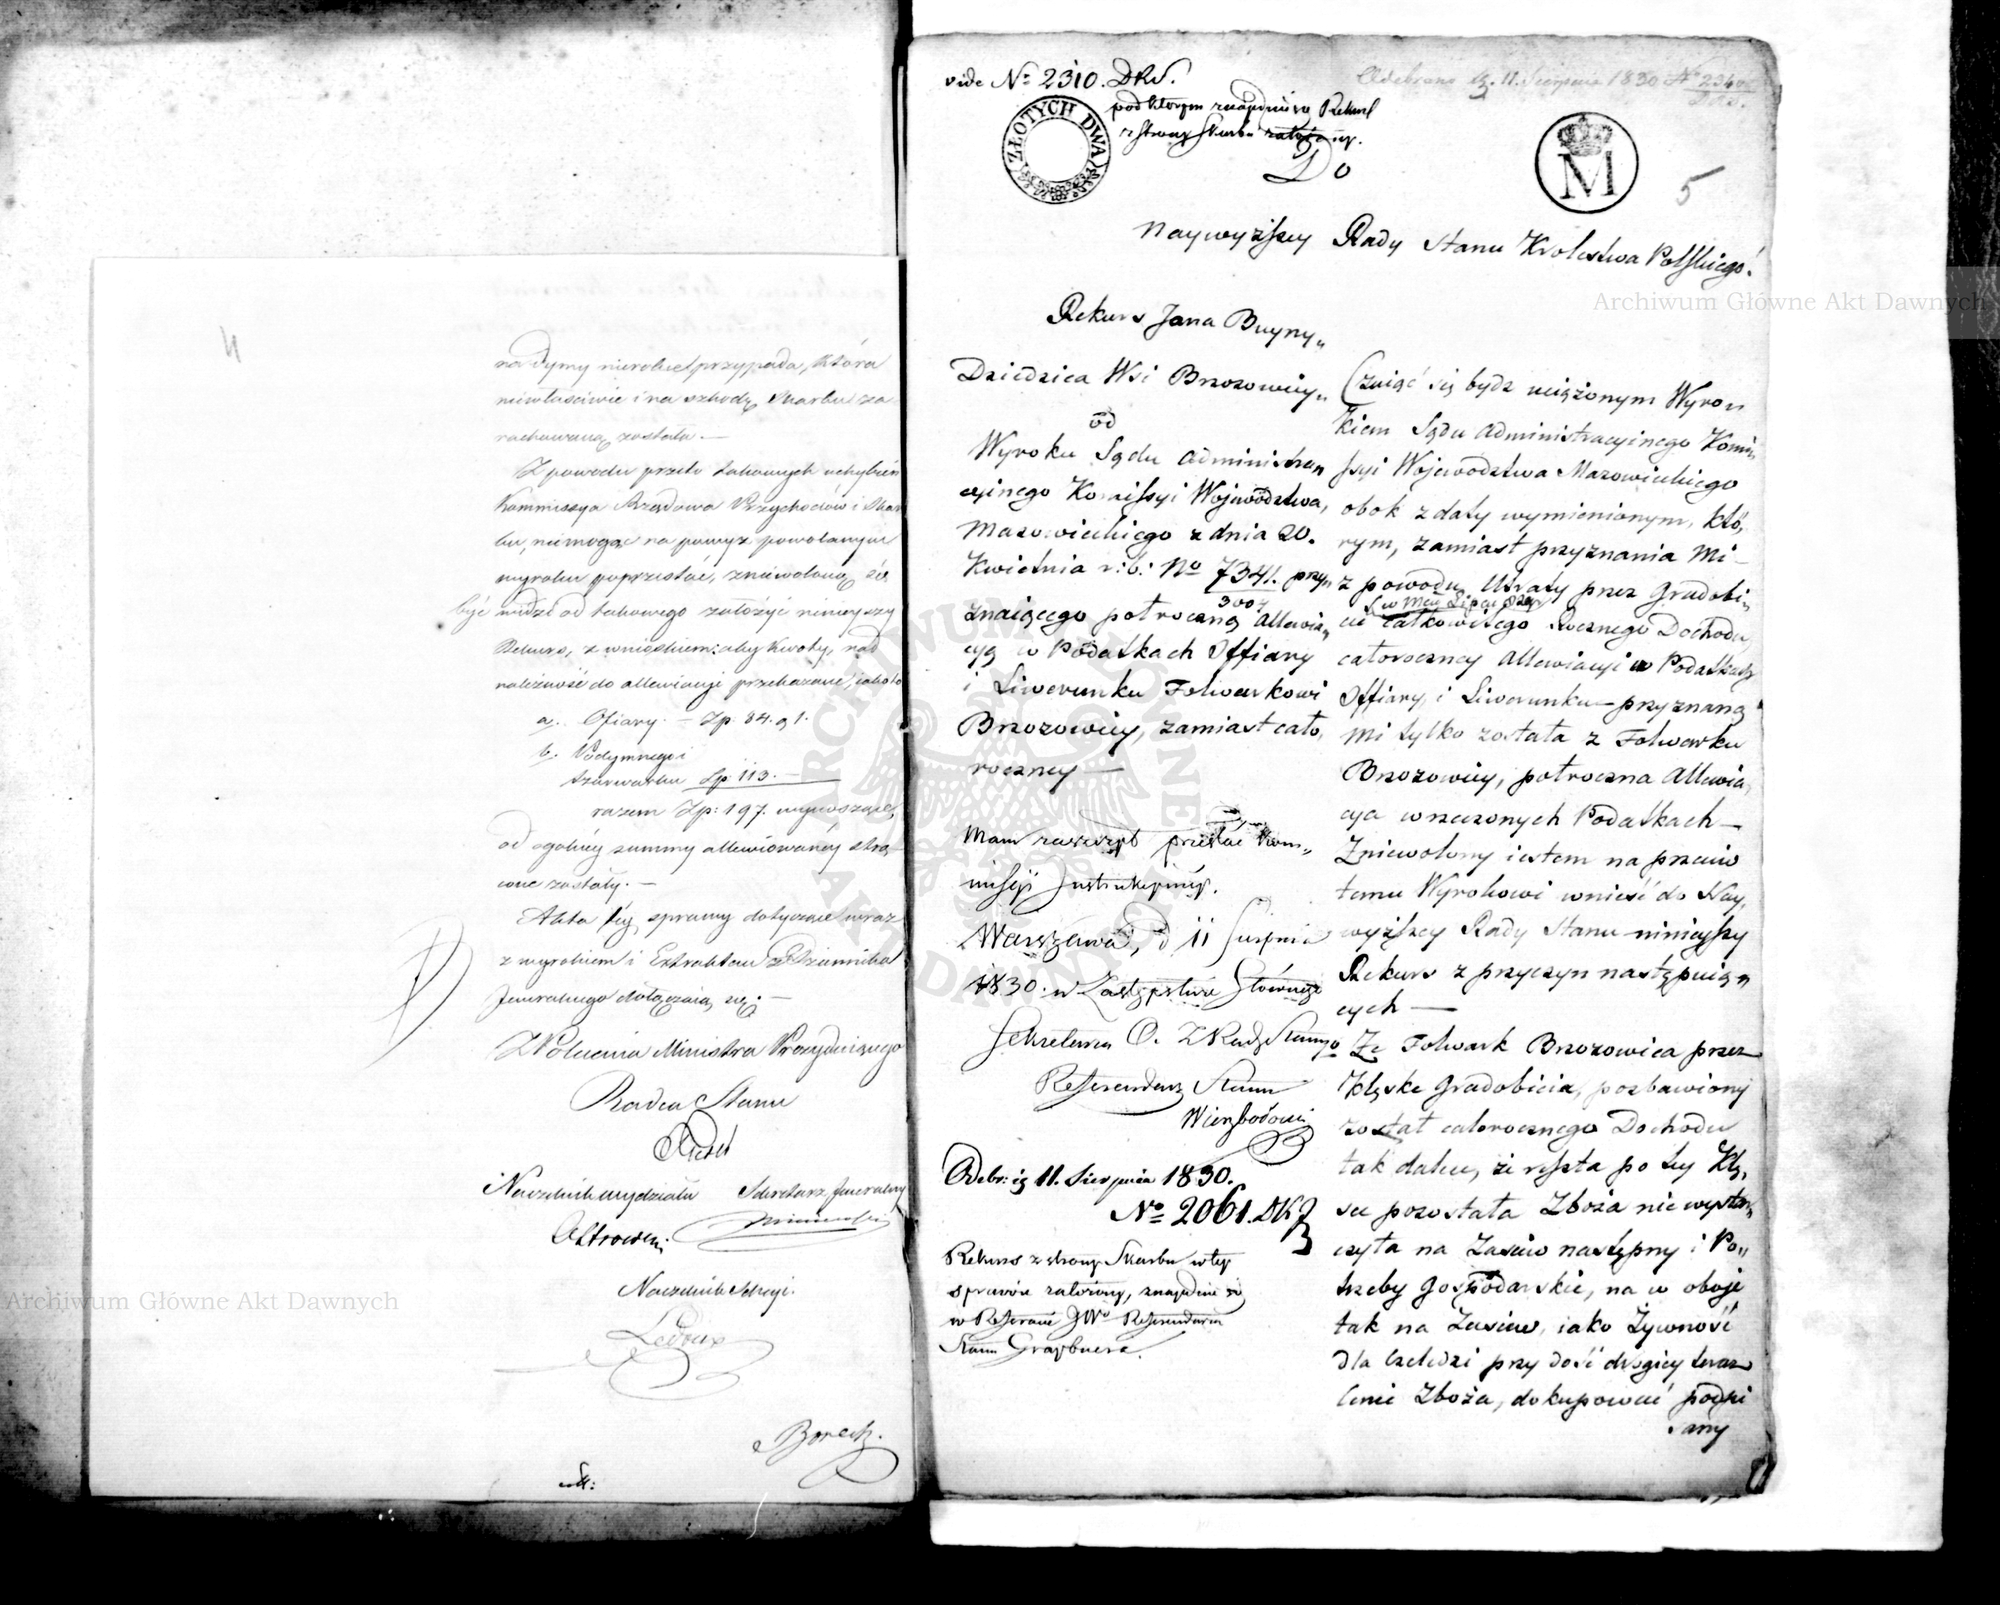 4
na Dymy nierolne przypada, która
niewłaściwie i na szkodę Skarbu za
rachowaną została. —
Z powodu przeto takowych uchybień
Kommissya Rządowa Przychodów i Skar
bu, niemogąc na powyż powołanym
wyroku poprzestać, zniewoloną się
być widzi od takowego założyć ninieyszy
Rekurs, z wnioskiem: aby kwoty, nad
należność do allewiacyi przekazane, jako to
a. Ofiary. — Zp. 84. g 1.
b. Podymnego i
Szarwarku Zp: 113. —
razem Zp: 197. wynoszące,
od ogólney summy allewiowanéy strą
cone zostały. —
Akta tey sprawy dotyczące wraz
z wyrokiem i Extraktem z Dziennika
Jeneralnego dołączaią się. —
Z Polecenia Ministra Prezyduiącego
Radca Stanu
Naczelnik wydziału Sekretarz Jeneralny
Naczelnik Sekcyi.
Ledoux
vide No 2310. DRS.
pod którym znayduie się Rekurs
z strony Skarbu założony.
Odebrano d. 11. Sierpnia 1830 No 2340
DRS.
ZŁOTYCH DWA
M
5
Do
Naywyższey Rady Stanu Królestwa Polskiego!
Rekurs Jana Buyny„
Dziedzica Wsi Brzozowicy„
od
Wyroku Sądu Administra„
cyinego Komissyi Województwa,
Mazowieckiego z dnia 20.
Kwietnia r: b: No 7341. przy„
3004
znaiącego pułroczną Allewia„
cyą w Podatkach Offiary
i Liwerunku Folwarkowi
Brzozowicy, zamiast cało,
roczney —
Mam zaszczyt przesłać Kom„
missyi Instrukcyiney.
Warszawa, d 11 Sierpnia
1830. w Zastępstwie Głównego
Sekretarza
Referendarz Stanu
Wierzbołowicz
Odebr: d 11. Sierpnia 1830.
No 2061. DKJ
Rekurs z strony Skarbu w tey
sprawie założony, znayduie się
w Referacie JWo Referendarza
Stanu Graybnera.
Czuiąc się bydz uciążonym Wyro„
kiem Sądu Administracyinego Komi„
ssyi Województwa Mazowieckiego
obok z daty wymienionym, któ,
rym, zamiast przyznania Mi —
z powodu Utraty przez Gradobi„
w Mcu Lipcu
cie całkowitego Rocznego Dochodu,
całoroczney Allewiacyi w Podatkach
Offiary i Liwerunku przyznaną
mi tylko została z Folwarku
Brzozowicy, pułroczna Allewia,
cya wrzeczonych Podatkach —
Zniewolony iestem na przeciw
temu Wyrokowi wnieść do Nay,
wyższey Rady Stanu ninieyszy
Rekurs z przyczyn następuią„
cych —
Że Folwark Brzozowica przez
Klęskę Gradobicia, pozbawiony
został całorocznego Dochodu
tak dalece, że reszta po tey Klę,
sce pozostała Zboża nie wystar„
czyła na Zasiew następny i Po„
trzeby Gospodarskie, na w oboje
tak na Zasiew, iako Żywność
dla Czeledzi przy dość drogiey teraz
Cenie Zboża, dokupować podpi
sany
Archiwum Główne Akt Dawnych
Archiwum Główne Akt Dawnych
ARCHIWUM GŁÓWNE AKT DAWNYCH